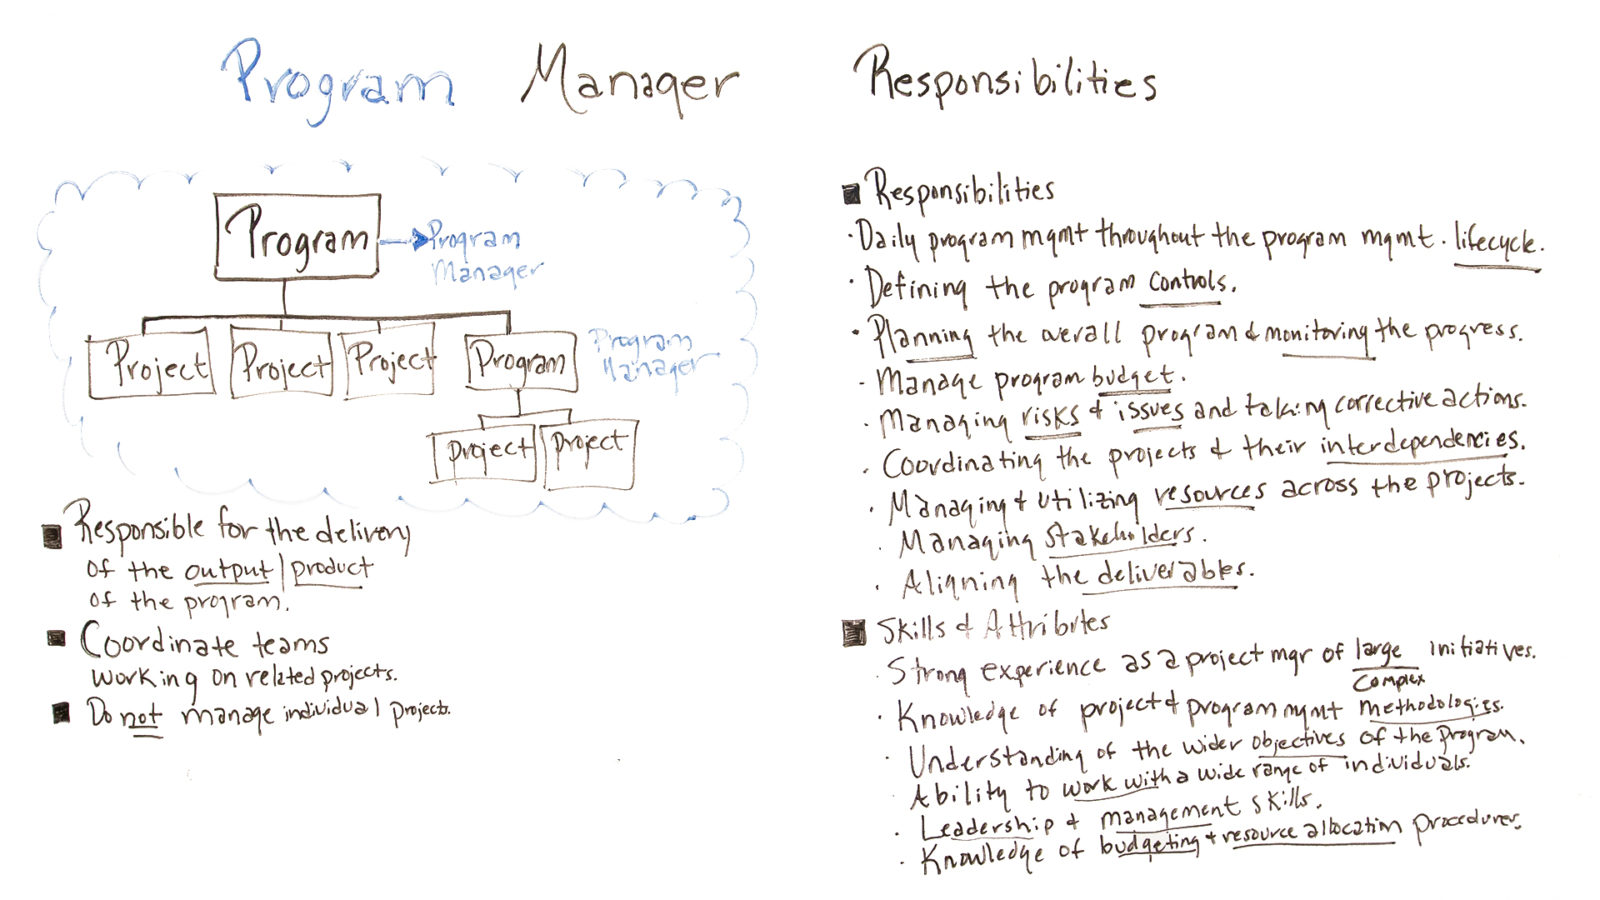 Program Manager Responsibilities
Program
Program
Manager
Project
Project
Project
Program
Program
Manager
Project
Project
■ Responsible for the delivery
of the output / product
of the program.
■ Coordinate teams
working on related projects.
■ Do not manage individual projects.
■ Responsibilities
· Daily program mgmt throughout the program mgmt. lifecycle.
· Defining the program controls.
· Planning the overall program & monitoring the progress.
- Manage program budget.
· Managing risks & issues and taking corrective actions.
· Coordinating the projects & their interdependencies.
· Managing & utilizing resources across the projects.
· Managing stakeholders.
· Aligning the deliverables.
■ Skills & Attributes
· Strong experience as a project mgr of large initiatives.
complex
· Knowledge of project & program mgmt methodologies.
· Understanding of the wider objectives of the program.
· Ability to work with a wide range of individuals.
· Leadership & management skills.
· Knowledge of budgeting & resource allocation procedures.